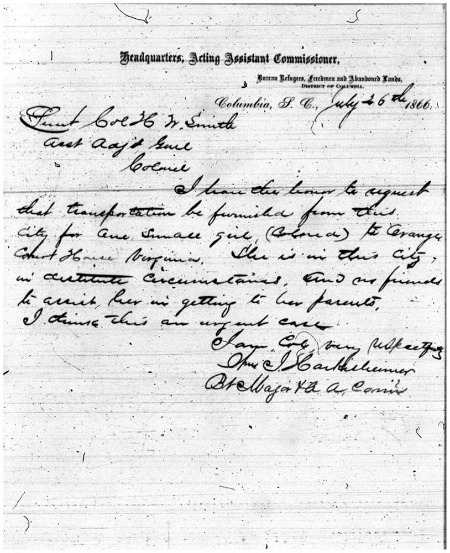 Headquarters, Acting Assistant Commissioner,
Bureau Refugees, Freedmen and Abandoned Lands,
DISTRICT OF COLUMBIA.
Columbia, S. C., July 26th 1866.
Lieut Col H. W. Smith
Asst Adjt Genl
Colonel
I have the honor to request
that transportation be furnished from this
City for one small girl (Colored) to Orange
Court House Virginia. She is in this City,
in destitute circumstances, and no friends
to assist her in getting to her parents,
I think this an urgent case
I am, Col, very respectfully
J.
Bt Major & A. A. Comr